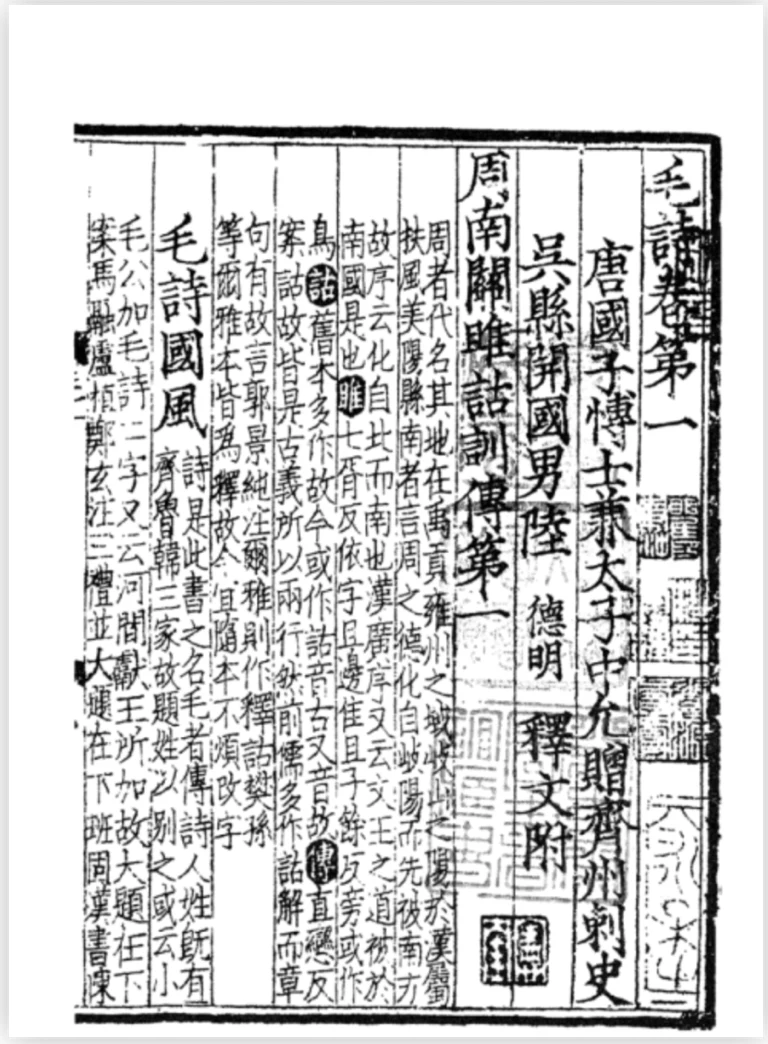 毛詩卷第一
唐國子博士兼太子中允贈齊州刺史
吳縣開國男陸 德明 釋文附
周南關雎詁訓傳第一
周者代名其地在禹貢雍州之域岐山之陽於漢屬
扶風美陽縣南者言周之德化自岐陽而先被南方
故序云化自北而南也漢廣序又云文王之道被於
南國是也雎七胥反依字且邊隹且子餘反旁或作
鳥詁舊本多作故今或作詁音古又音故傳直戀反
案詁故皆是古義所以兩行然前儒多作詁解而章
句有故言郭景純注爾雅則作釋詁樊孫
等爾雅本皆爲釋故今且隨本不煩改字
毛詩國風
詩是此書之名毛者傳詩人姓旣有
齊魯韓三家故題姓以別之或云小
毛公加毛詩二字又云河間獻王所加故大題在下
案馬融盧植鄭玄注三禮並大題在下班固漢書陳